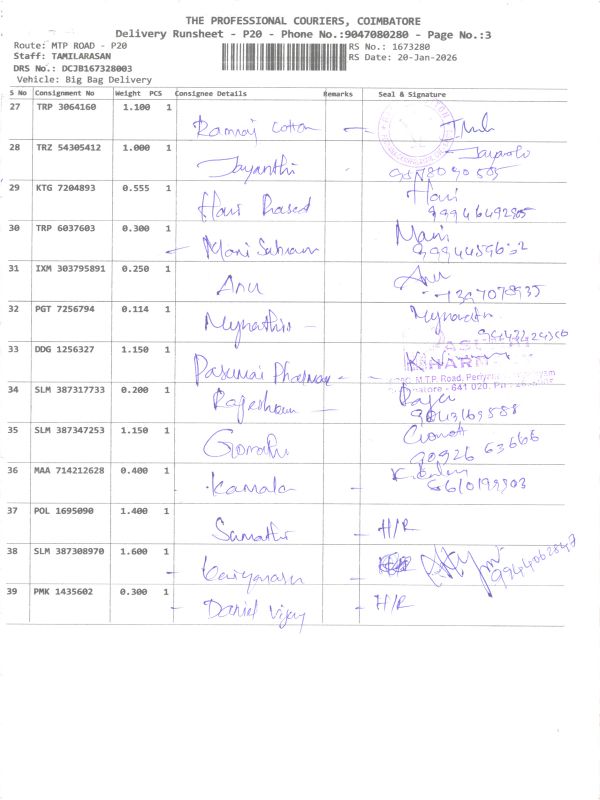 THE PROFESSIONAL COURIERS, COIMBATORE
Delivery Runsheet - P20 - Phone No.:9047080280 - Page No.:3
Route: MTP ROAD - P20 RS No.: 1673280
Staff: TAMILARASAN RS Date: 20-Jan-2026
DRS No.: DCJB167328003
Vehicle: Big Bag Delivery
S No Consignment No Weight PCS Consignee Details Remarks Seal & Signature
27 TRP 3064160 1.100 1
Ramraj Cotton
28 TRZ 54305412 1.000 1
Jayanthi
29 KTG 7204893 0.555 1
Hari Prasad Hari
30 TRP 6037603 0.300 1
Mani Mani
31 IXM 303795891 0.250 1
Anu Anu
32 PGT 7256794 0.114 1
33 DDG 1256327 1.150 1
M.T.P. Road,
641 020.
34 SLM 387317733 0.200 1
35 SLM 387347253 1.150 1
Gomathi
90926 63666
36 MAA 714212628 0.400 1
Kamala
37 POL 1695090 1.400 1
Sumathi H/R
38 SLM 387308970 1.600 1
39 PMK 1435602 0.300 1
Daniel Vijay H/R